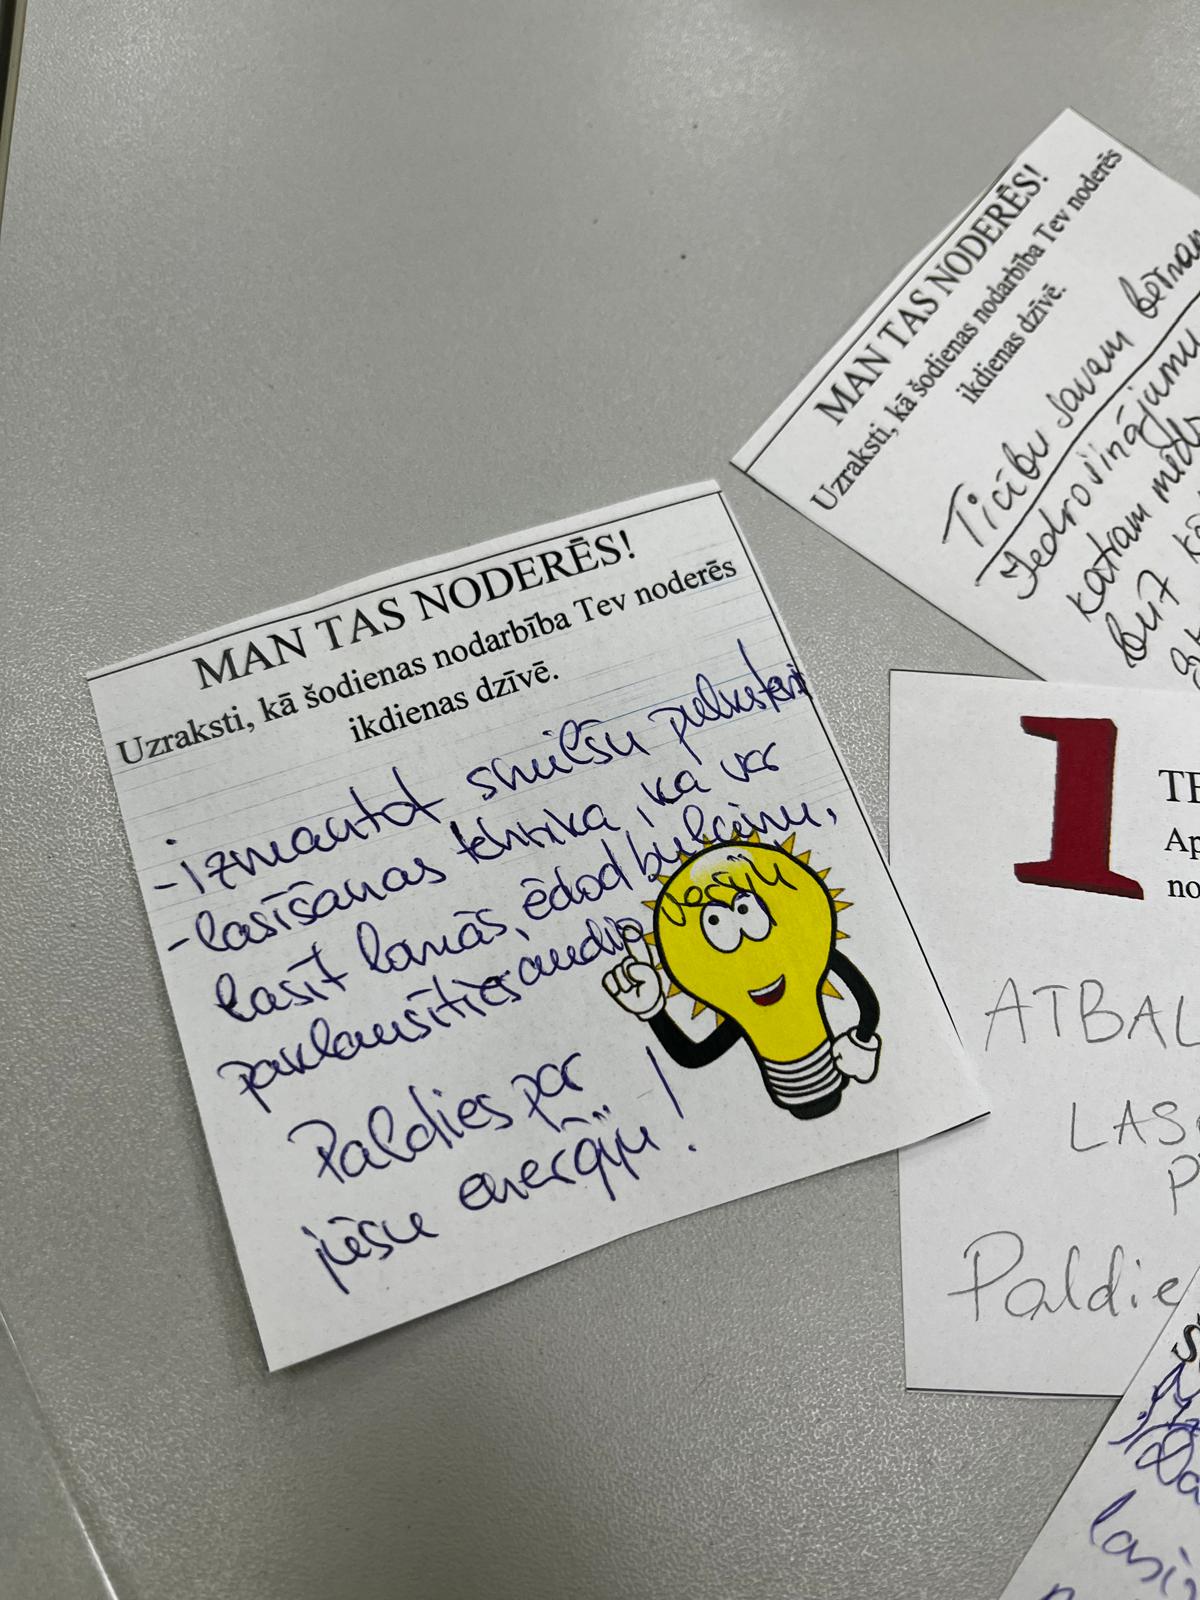 MAN TAS NODERĒS!
Uzraksti, kā šodienas nodarbība Tev noderēs
ikdienas dzīvē.
- izmantot smilšu pulksteni
- lasīšanas tehnika, ka var
lasīt lamās, ēdod bulciņu,
paklausīties audio versiju
Paldies par
jūsu enerģiju!
MAN TAS NODERĒS!
Uzraksti, kā šodienas nodarbība Tev noderēs
ikdienas dzīvē.
Ticību savam bērnam
Iedrošinājumu
katram
būt
1
TE
Ap
no
ATBAL
LAS
P
Paldie